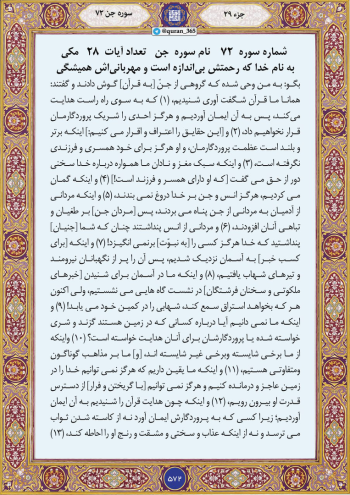 جزء ۲۹
@quran_365
سوره جن ۷۲
شماره سوره ۷۲ نام سوره جن تعداد آیات ۲۸ مکی
به نام خدا که رحمتش بی‌اندازه است و مهربانی‌اش همیشگی
بگو: به من وحی شده که گروهی از جنّ [به قرآن] گوش دادند و گفتند:
همانا ما قرآن شگفت آوری شنیدیم، (۱) که به سوی راه راست هدایت
می‌کند، پس به آن ایمان آوردیم و هرگز احدی را شریک پروردگارمان
قرار نخواهیم داد، (۲) و [این حقایق را اعتراف و اقرار می کنیم:] اینکه برتر
و بلند است عظمت پروردگارمان، و او هرگز برای خود همسری و فرزندی
نگرفته است، (۳) و اینکه سبک مغز و نادان ما همواره درباره خدا سخنی
دور از حق می گفت [که او دارای همسر و فرزند است!] (۴) و اینکه گمان
می کردیم، هرگز انس و جن بر خدا دروغ نمی بندند، (۵) و اینکه مردانی
از آدمیان به مردانی از جن پناه می بردند، پس [مردان جن] بر طغیان و
تباهی آنان افزودند، (۶) و مردانی از انس پنداشتند چنان که شما [جنیان]
پنداشتید که خدا هرگز کسی را [به نبوّت] برنمی انگیزد! (۷) و اینکه [برای
کسب خبر] به آسمان نزدیک شدیم، پس آن را پر از نگهبانان نیرومند
و تیرهای شهاب یافتیم، (۸) و اینکه ما در آسمان برای شنیدن [خبرهای
ملکوتی و سخنان فرشتگان] در نشست گاه هایی می نشستیم، ولی اکنون
هر که بخواهد استراق سمع کند، شهابی را در کمین خود می یابد! (۹) و
اینکه ما نمی دانیم آیا درباره کسانی که در زمین هستند گزند و شری
خواسته شده یا پروردگارشان برای آنان هدایت خواسته است؟ (۱۰) واینکه
از ما برخی شایسته وبرخی غیر شایسته اند، [و] ما بر مذاهب گوناگون
ومتفاوتی هستیم، (۱۱) و اینکه ما یقین داریم که هرگز نمی توانیم خدا را در
زمین عاجز و درمانده کنیم و هرگز نمی توانیم [با گریختن و فرار] از دسترس
قدرت او بیرون رویم، (۱۲) و اینکه چون هدایت قرآن را شنیدیم به آن ایمان
آوردیم؛ زیرا کسی که به پروردگارش ایمان آورد نه از کاسته شدن ثواب
می ترسد و نه از اینکه عذاب و سختی و مشقت و رنج او را احاطه کند، (۱۳)
۵۷۲